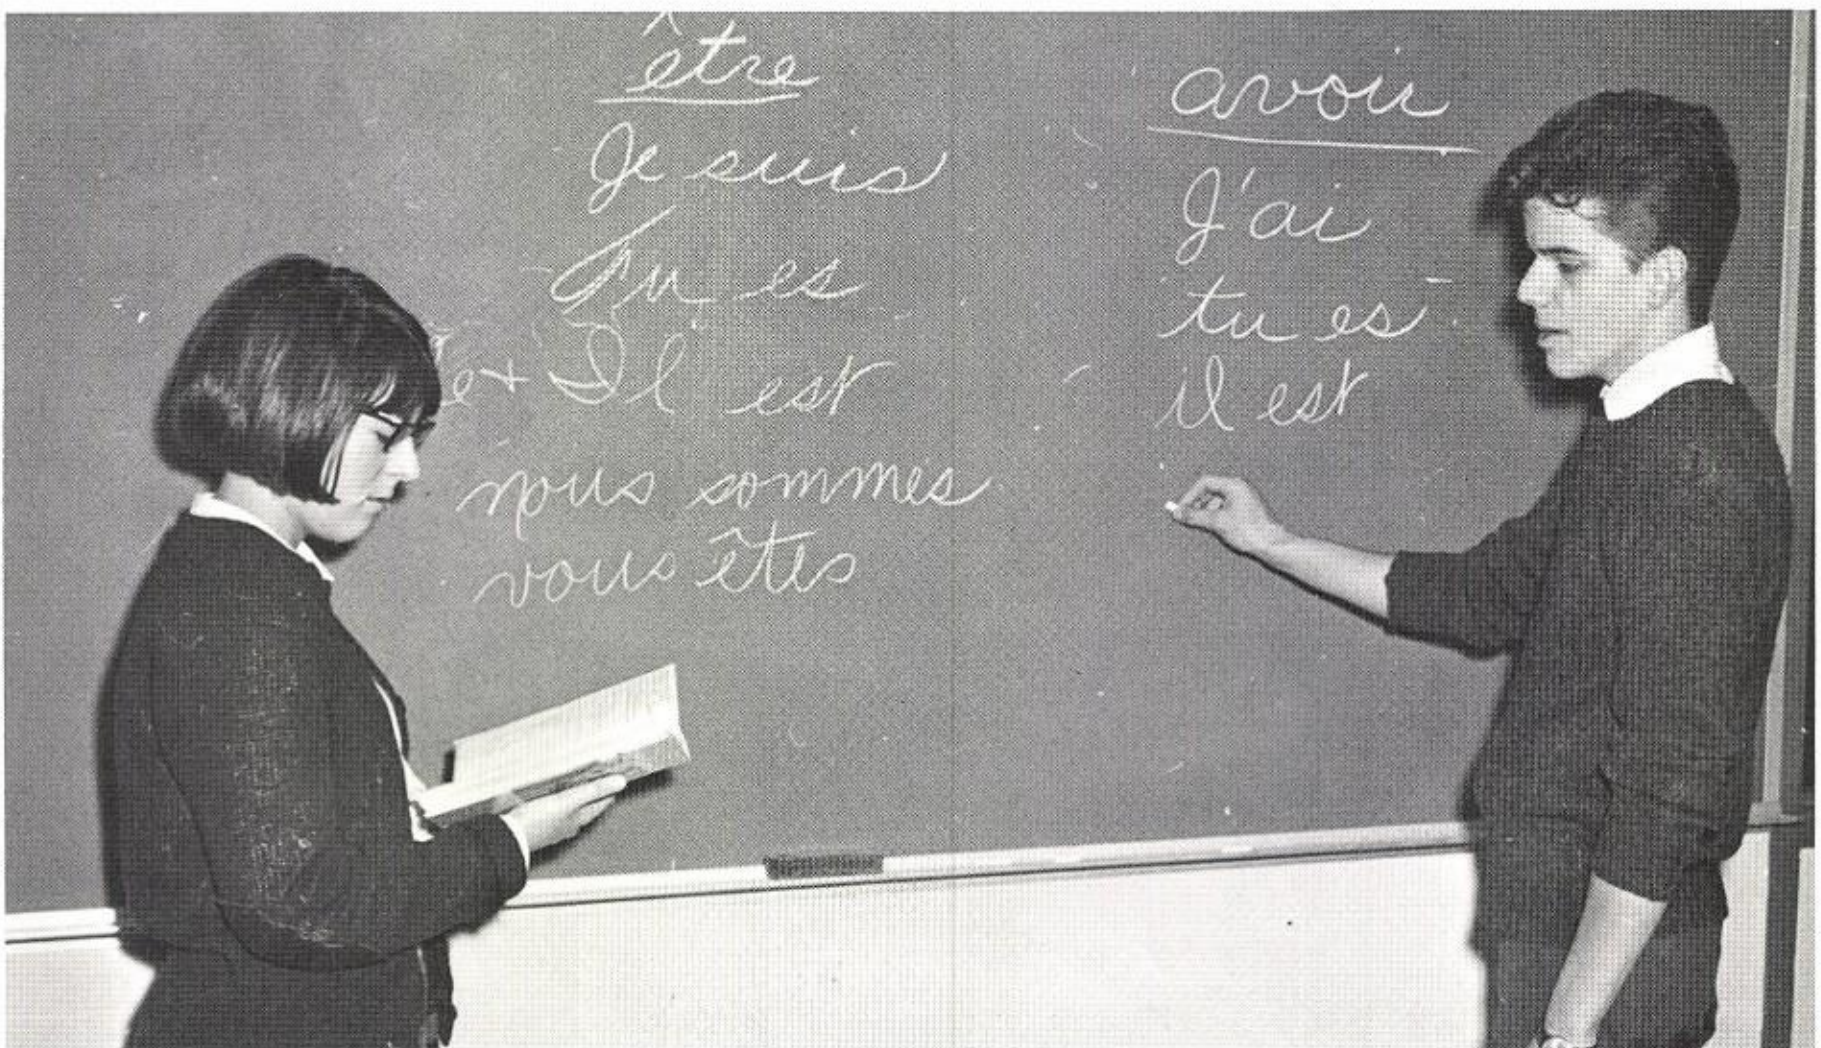 être
Je suis
Tu es
Il est
nous sommes
vous êtes
avoir
J'ai
tu es
il est